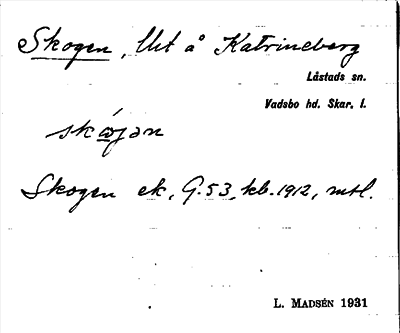 Skogen, Utt å Katrineberg
Låstads sn.
Vadsbo hd. Skar. l.
skógən
Skogen ek, G.53, kb.1912, mtl.
L. MADSÉN 1931